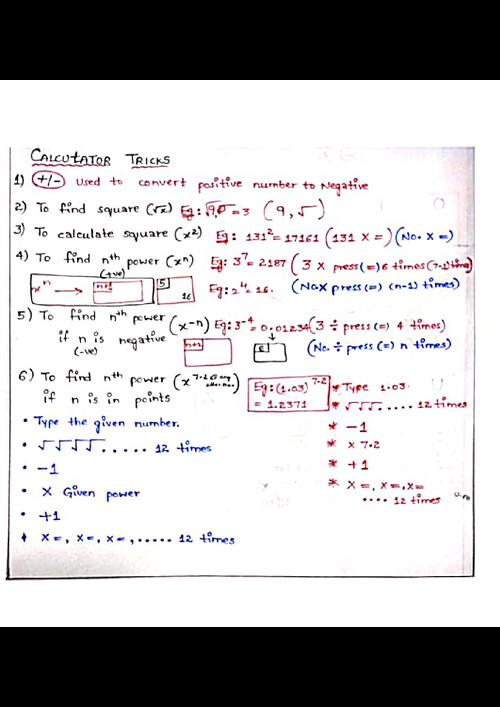 CALCUTATOR TRICKS
1) +/- Used to convert positive number to Negative
2) To find square (√x) Eg: √9 = 3 (9, √)
3) To calculate square (x²) Eg: 131² = 17161 (131 X =) (No. X =)
4) To find nth power (xⁿ) Eg: 3⁷ = 2187 (3 X press (=) 6 times (7-1) time)
(+ve)
xⁿ → n+1 5 16 Eg: 2⁴ = 16. (No.X press (=) (n-1) times)
5) To find nth power (x⁻ⁿ) Eg: 3⁻⁴ = 0.01234 (3 ÷ press (=) 4 times)
if n is negative (No. ÷ press (=) n times)
(-ve)
6) To find nth power (x^7.2 or any other no.) Eg: (1.03)^7.2 = 1.2371
if n is in points
• Type the given number.
• √√√√ ..... 12 times
• -1
• X Given power
• +1
• X =, X =, X =, ..... 12 times
* Type 1.03.
* √√√ ..... 12 times
* -1
* X 7.2
* +1
* X =, X =, X =
.... 12 times